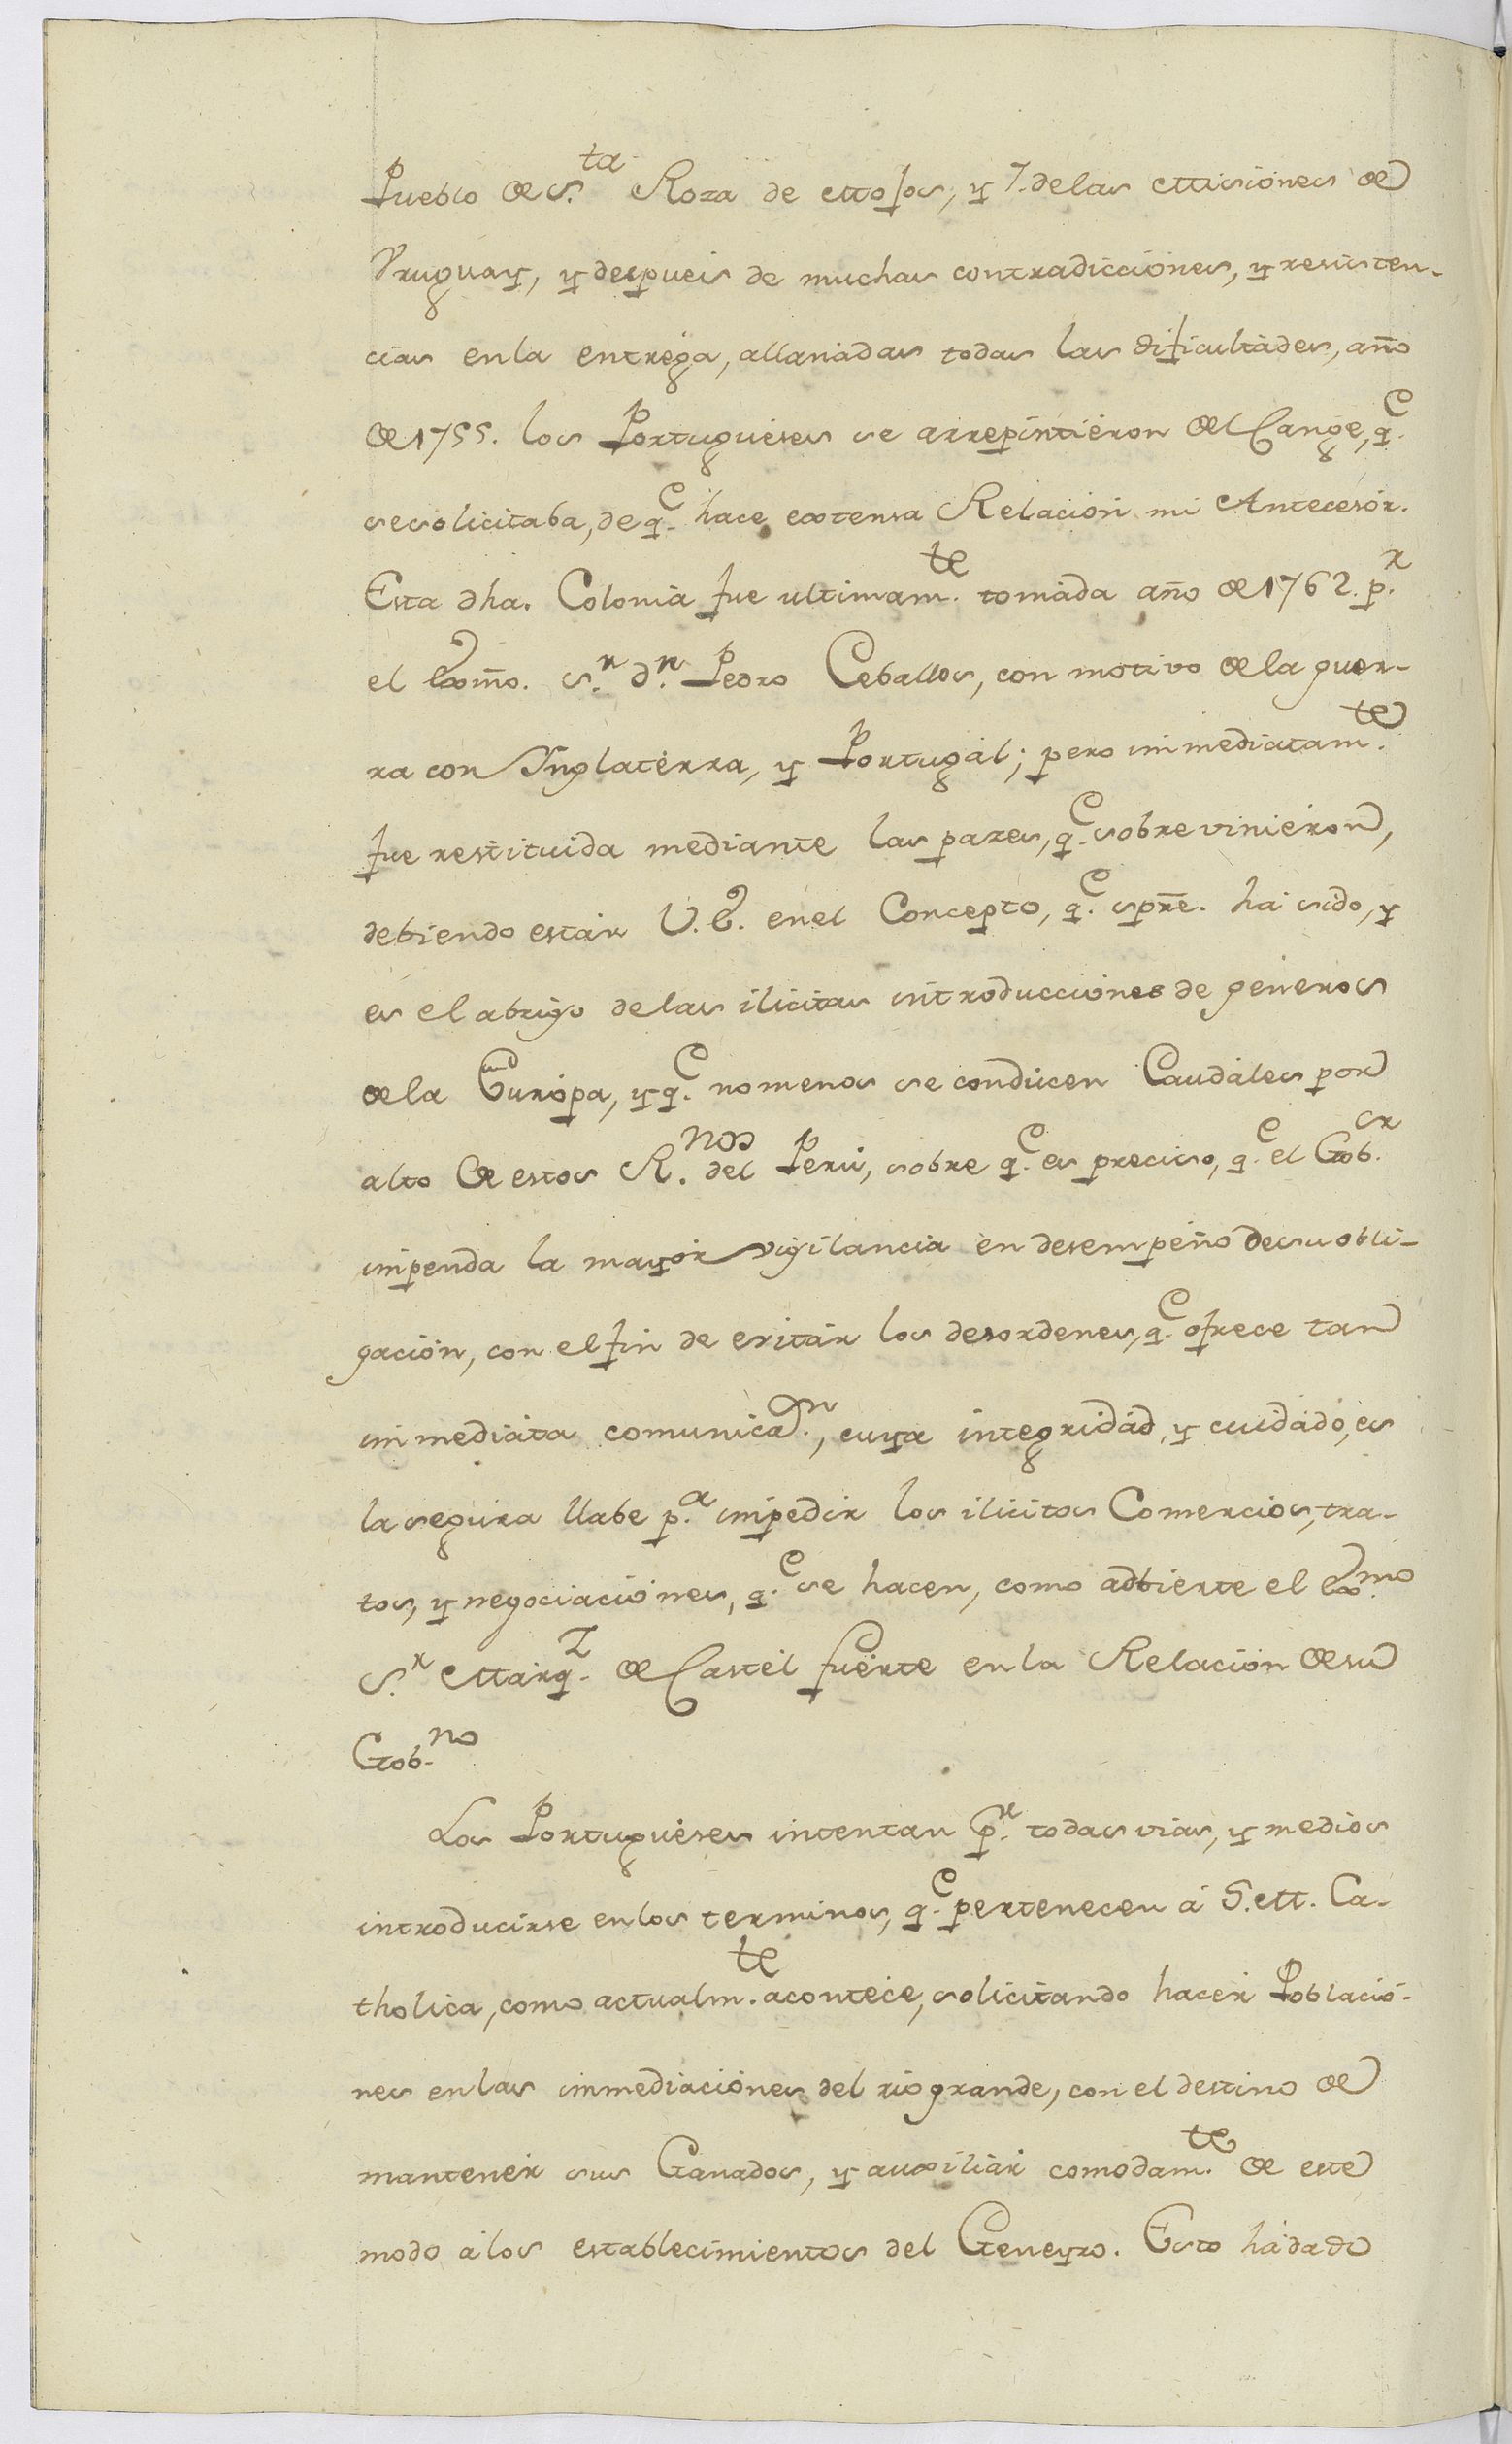 Pueblo de S.ta Roza de Mojos, y 7. delas Misiones de
Vruguay, y despues de muchas contradicciones, y resisten-
cias enla entrega, allanadas todas las dificultades, año
de 1755. los Portugueses se arrepintieron del Cange, q.e
sesolicitaba, de q.e hace extensa Relacion mi Antecesor.
Esta dha. Colonia fue ultimam.te tomada año de 1762. p.r
el Exmo. S.r d.n Pedro Ceballos, con motivo de la guer-
ra con Ynglaterra, y Portugal; pero immediatam.te
fue restituida mediante las pazes, q.e sobrevinieron,
debiendo estar V.E. enel Concepto, q.e spre. há sido, y
es el abrigo delas ilicitas introducciones de generos
de la Európa, y q.e nomenos se condúcen Caudáles por
alto de estos R.nos del Perú, sobre q.e es preciso, q.e el Gob.or
impenda la mayor vigilancia en desempeño desu obli-
gación, con el fin de evitár los desordenes, q.e ofrece tan
immediáta comunica.on, cuya integridad, y cuidádo, es
la segura llabe p.a impedir los ilicitos Comercios, tra-
tos, y negociaciónes, q.e se hacen, como adbierte el Ex.mo
S.r Marq.z de Castél fuérte en la Relación de su
Gob.no
Los Portugueses intentan p.r todas vias, y medios
introducirse enlos terminos, q.e pertenecen á S.M. Ca-
tholica, como actualm.te acontéce, solicitando hacer Població-
nes enlas immediaciónes del riogrande, con el destino de
mantener sus Ganados, y auxiliár comodam.te de este
modo álos establecimientos del Geneyro. Esto hádado